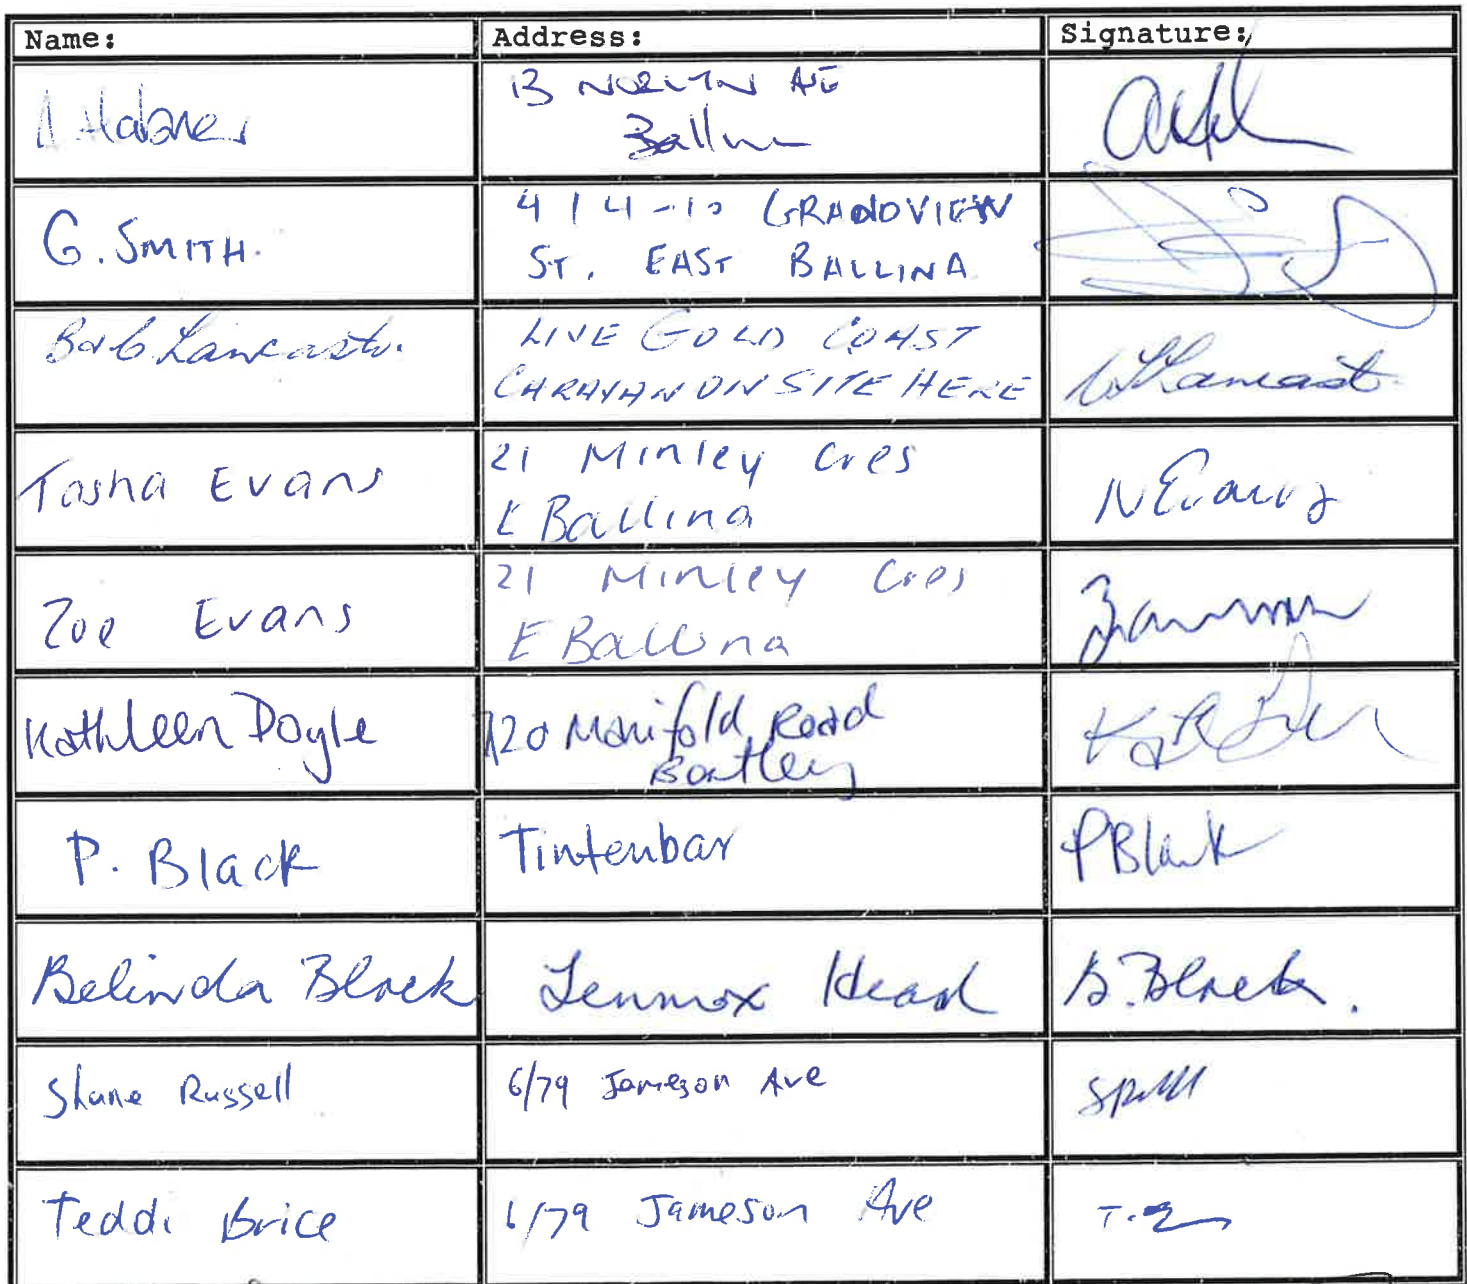 Name: Address: Signature:
13 NORLYN AVE
Ballina
G. SMITH.
4 / 4-10 GRANDVIEW
ST. EAST BALLINA
Bob Lancaster.
LIVE GOLD COAST
CARAVAN ON SITE HERE
Tasha Evans
21 Minley Cres
E Ballina
N Evans
Zoe Evans
21 Minley Cres
E Ballina
Kathleen Doyle
Manifold Road
P. Black
Tintenbar
P Black
Belinda Black
Lennox Head
B. Black.
Shane Russell
6/79 Jameson Ave
Teddi Brice
6/79 Jameson Ave